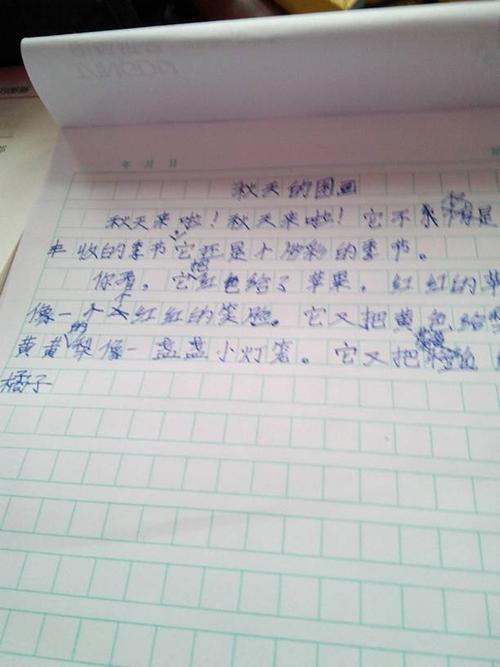 年 月 日
秋天的图画
秋天来啦！秋天来啦！它不是
丰收的季节它还是个多彩的季节。
你看，它把红色给了苹果，红红的苹
像一个个红红的笑脸。它又把黄色给
黄黄的梨像一盏盏小灯笼。它又把橙色
橘子